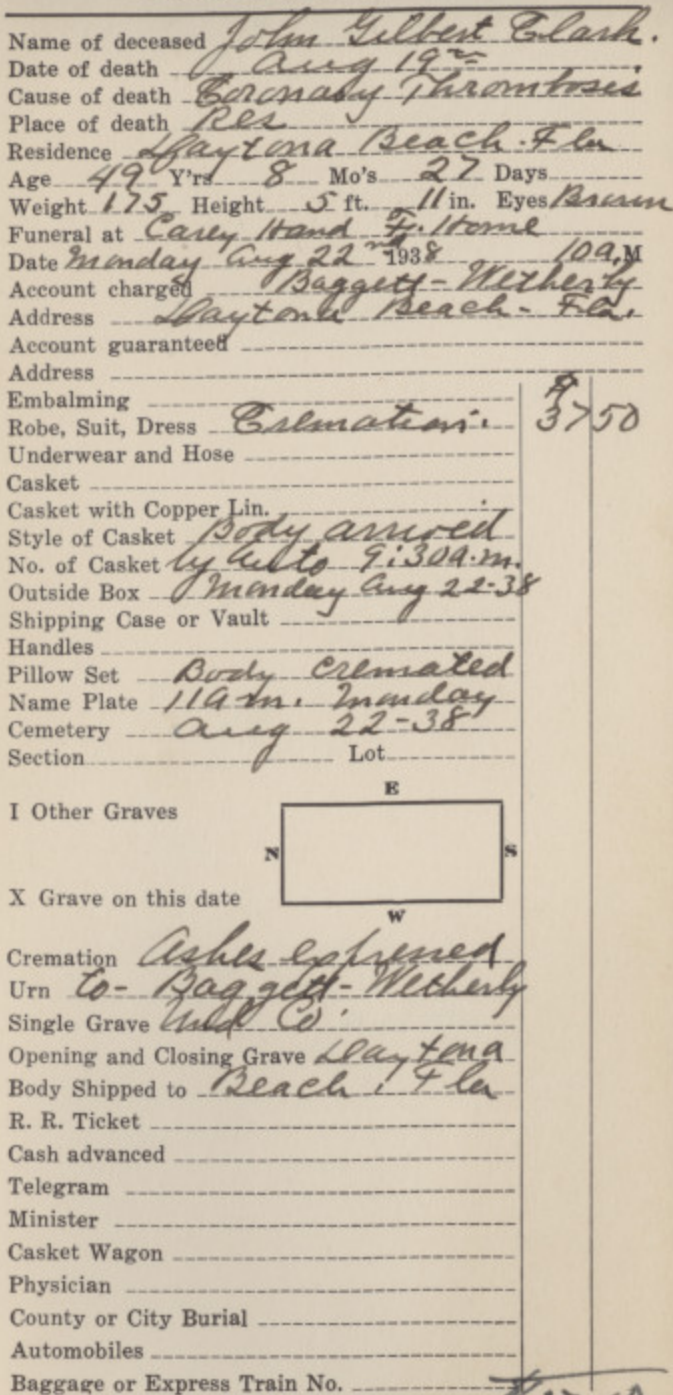 Name of deceased John Gilbert Clark.
Date of death Aug 19
Cause of death Coronary Thrombosis
Place of death Res
Residence Daytona Beach. Fla
Age 49 Y'rs 8 Mo's 27 Days
Weight 175 Height 5 ft. 11 in. Eyes Brown
Funeral at Carey Hand F. Home
Date Monday Aug 22nd 1938 10 a.M
Account charged Baggett-Wetherby
Address Daytona Beach - Fla.
Account guaranteed
Address
Embalming
Robe, Suit, Dress Cremation. $ 37 50
Underwear and Hose
Casket
Casket with Copper Lin.
Style of Casket Body arrived
No. of Casket by Auto 9:30 a.m.
Outside Box Monday Aug 22-38
Shipping Case or Vault
Handles
Pillow Set Body cremated
Name Plate 11 a m. Monday
Cemetery Aug 22-38
Section Lot
E
I Other Graves
N S
X Grave on this date
W
Cremation Ashes expressed
Urn to- Baggett-Wetherby
Single Grave Und Co.
Opening and Closing Grave Daytona
Body Shipped to Beach, Fla
R. R. Ticket
Cash advanced
Telegram
Minister
Casket Wagon
Physician
County or City Burial
Automobiles
Baggage or Express Train No.